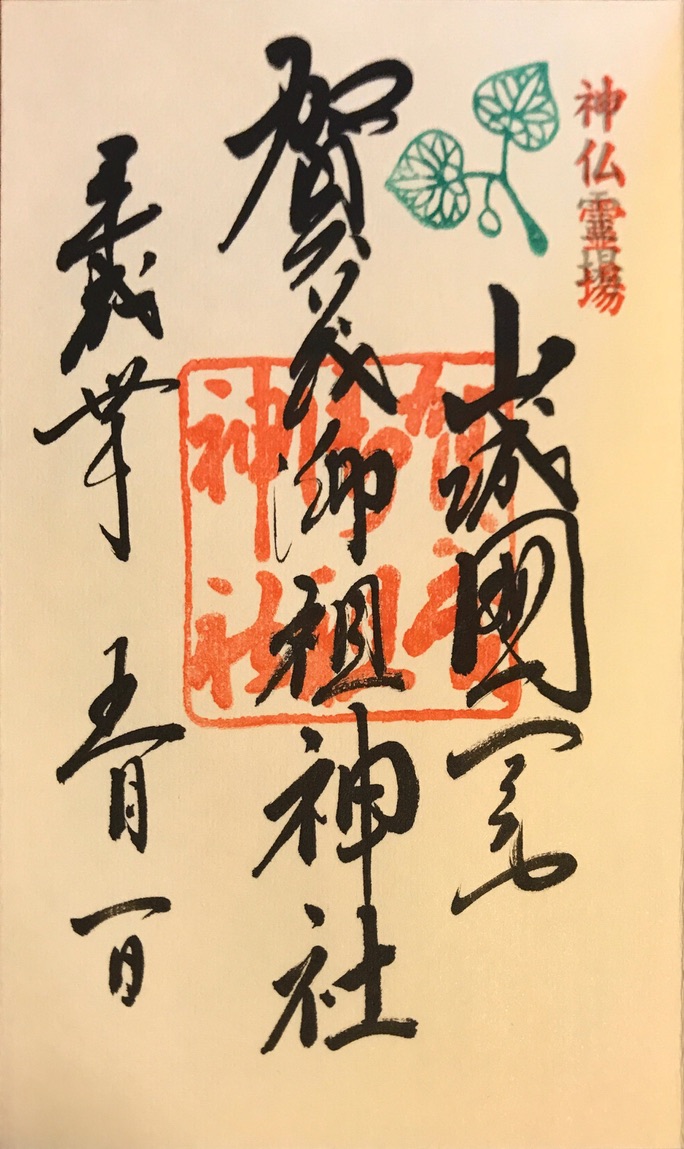 神仏霊場
山城國一宮
賀茂御祖神社
賀茂
御祖
神社
平成丗年 五月一日